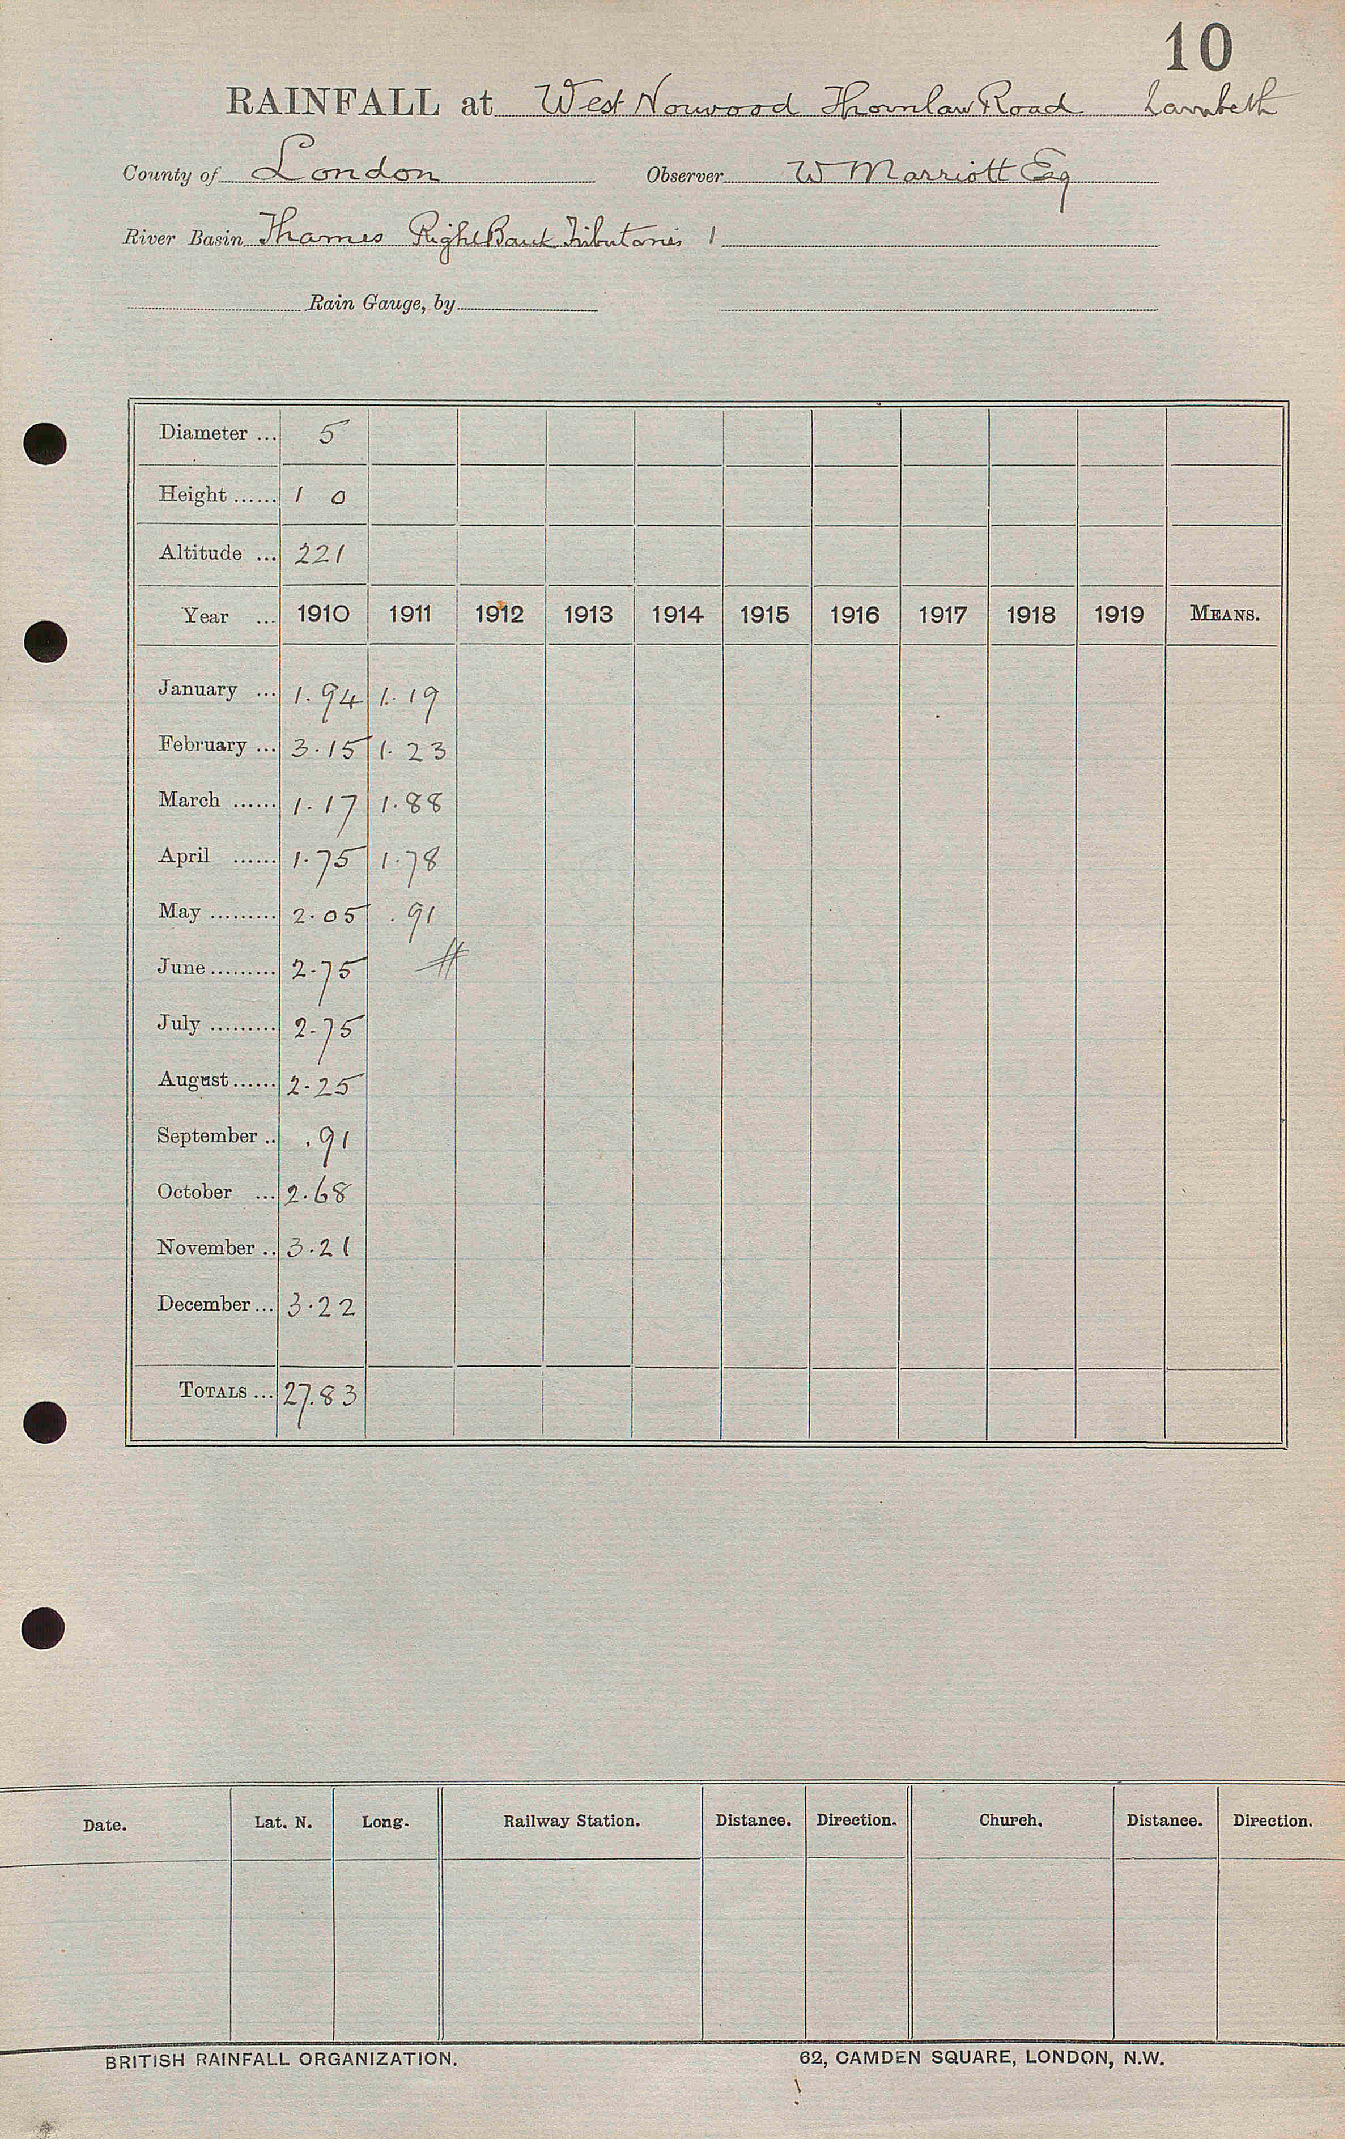 10
RAINFALL at West Norwood Thornlaw Road Lambeth
County of London Observer W Marriott Esq
River Basin Thames Right Bank Tributaries 1
Rain Gauge, by
Diameter ... 5
Height ...... 1 0
Altitude ... 221
Year ... 1910 1911 1912 1913 1914 1915 1916 1917 1918 1919 MEANS.
January ... 1.94 1.19
February ... 3.15 1.23
March ...... 1.17 1.88
April ...... 1.75 1.78
May ......... 2.05 .91
June ......... 2.75 #
July ......... 2.75
August ...... 2.25
September .. .91
October ... 2.68
November .. 3.21
December ... 3.22
TOTALS ... 27.83
Date. Lat. N. Long. Railway Station. Distance. Direction. Church. Distance. Direction.
BRITISH RAINFALL ORGANIZATION. 62, CAMDEN SQUARE, LONDON, N.W.